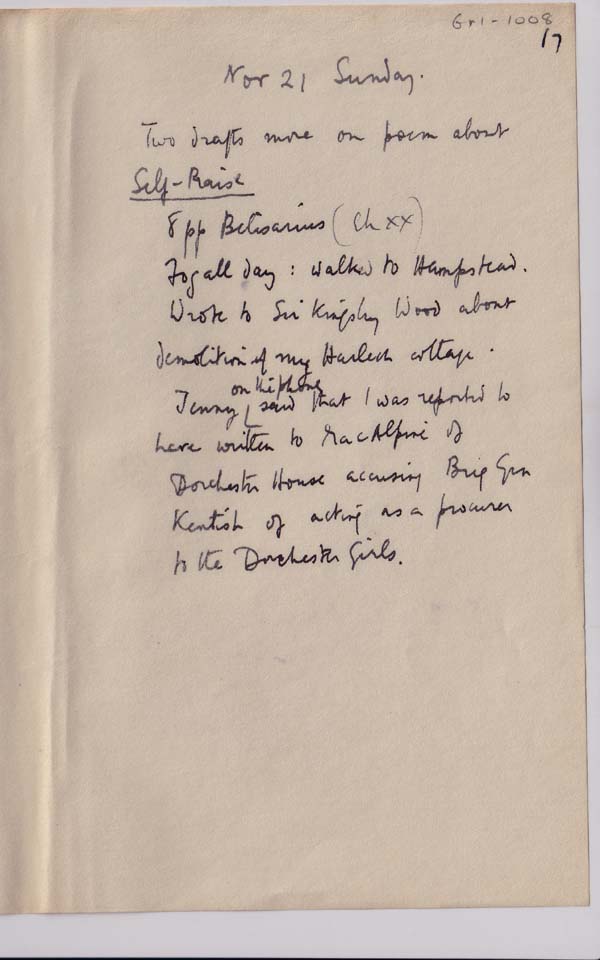 Gr1-1008
17
Nov 21 Sunday.
Two drafts more on poem about
Self-Praise
8 pp Belisarius (Ch XX)
Fog all day : walked to Hampstead.
Wrote to Sir Kingsley Wood about
demolition of my Harlech cottage.
on the phone
Jenny said that I was reported to
have written to MacAlpine of
Dorchester House accusing Brig Gen
Kentish of acting as a procurer
to the Dorchester Girls.